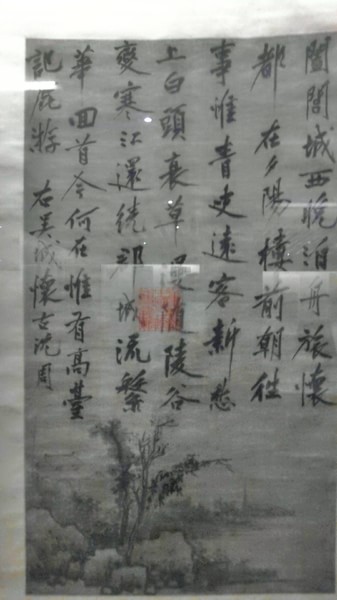 闔閭城西晚泊舟旅懷
都在夕陽樓前朝往
事惟青史遠客新愁
上白頭衰草漫隨陵谷
變寒江還繞郡城流繁
華回首今何在惟有高臺
記鹿游 右吴城懷古沈周